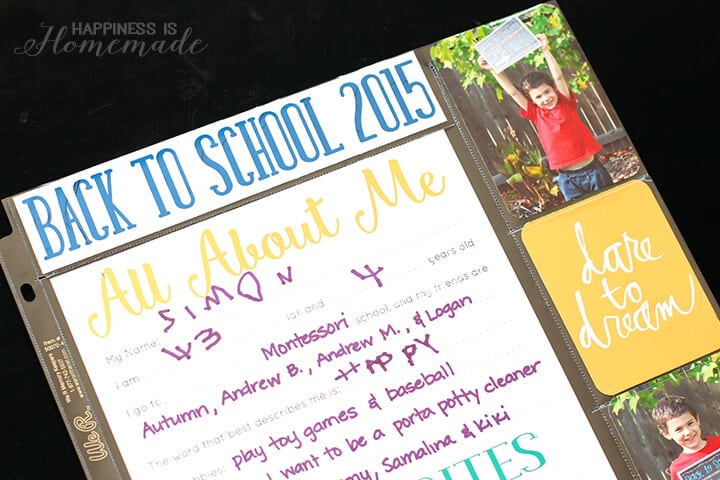 HAPPINESS IS
Homemade
BACK TO SCHOOL 2015
All About Me
My Name: SIMON
I am 43 tall and 4 years old
I go to Montessori school, and my friends are
Autumn, Andrew B., Andrew M., & Logan
The word that best describes me is: HAPPY
play toy games & baseball
I want to be a porta potty cleaner
Samalina & Kiki
dare
to
dream
We R